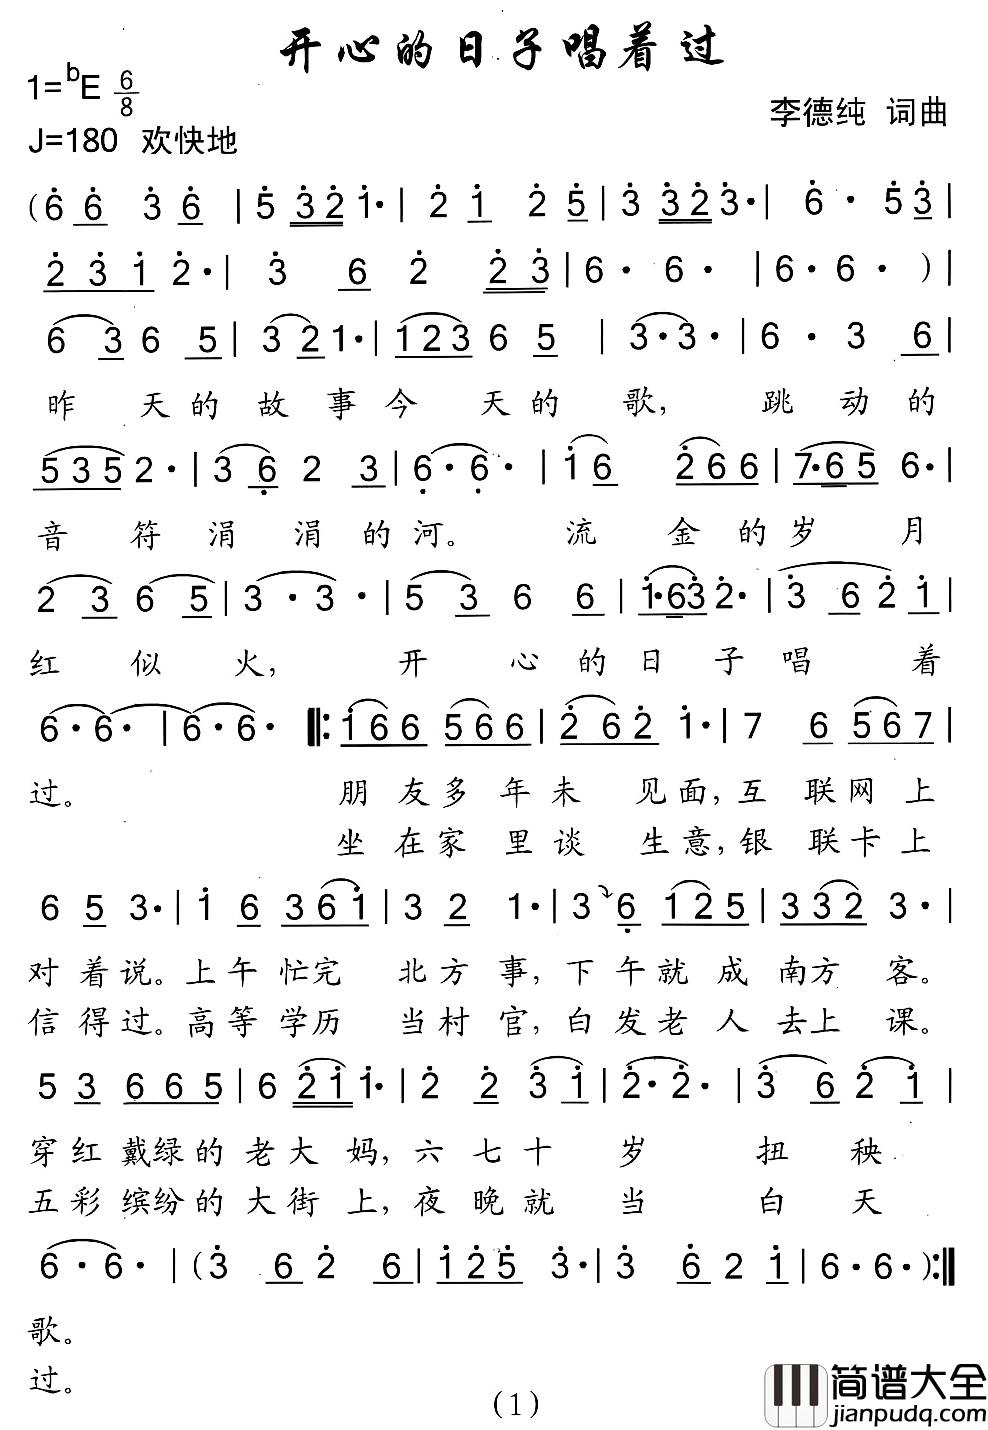 开心的日子唱着过
1=ᵇE 6/8
李德纯 词曲
J=180 欢快地
(6̇ 6̇ 3̇ 6̇ | 5̇ 3̇ 2̇ 1̇· | 2̇ 1̇ 2̇ 5̇ | 3̇ 3̇ 2̇ 3̇· | 6̇ · 5̇ 3̇ |
2̇ 3̇ 1̇ 2̇· | 3̇ 6 2̇ 2̇ 3̇ | 6· 6· | 6· 6· ) |
6 3 6 5 | 3 2 1· | 1 2 3 6 5 | 3· 3· | 6· 3 6 |
昨天的故事今天的歌，跳动的
5 3 5 2· | 3 6̣ 2 3 | 6̣· 6̣· | 1̇ 6 2̇ 6 6 | 7· 6 5 6· |
音符涓涓的河。流金的岁月
2 3 6 5 | 3 · 3 · | 5 3 6 6 | 1̇· 6 3̇ 2̇· | 3̇ 6 2̇ 1̇ |
红似火，开心的日子唱着
6· 6· | 6· 6· ‖: 1̇ 6 6 5 6 6 | 2̇ 6 2̇ 1̇· | 7 6 5 6 7 |
过。朋友多年未见面，互联网上
坐在家里谈生意，银联卡上
6 5 3· | 1̇ 6 3 6 1̇ | 3 2 1· | 3 6̣ 1 2 5 | 3 3 2 3· |
对着说。上午忙完北方事，下午就成南方客。
信得过。高等学历当村官，白发老人去上课。
5 3 6 6 5 | 6 2̇ 1̇ 1̇· | 2̇ 2̇ 3̇ 1̇ | 2̇· 2̇· | 3̇ 6 2̇ 1̇ |
穿红戴绿的老大妈，六七十岁扭秧
五彩缤纷的大街上，夜晚就当白天
6· 6· | (3̇ 6 2̇ 6 | 1̇ 2̇ 5̇ 3̇· | 3̇ 6̇ 2 1̇ | 6· 6· ) :‖
歌。
过。
(1)
简谱大全
jianpudq.com